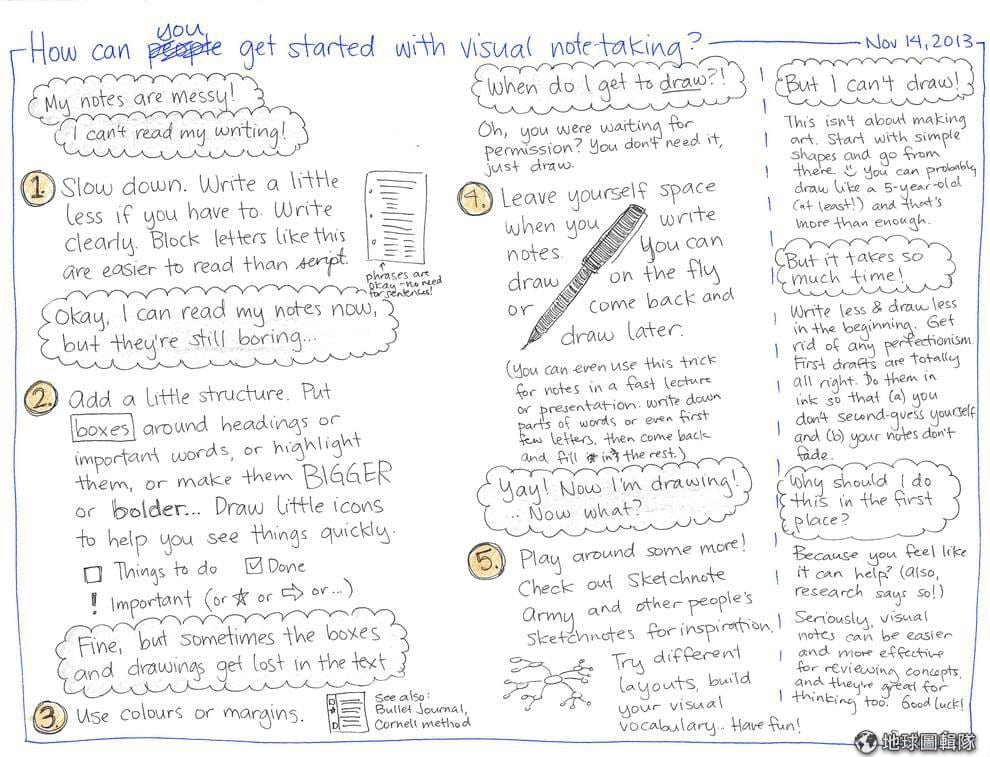 How can you get started with visual note-taking?
people
Nov 14, 2013
My notes are messy!
I can't read my writing!
1. Slow down. Write a little
less if you have to. Write
clearly. Block letters like this
are easier to read than script.
phrases are
okay - no need
for sentences!
Okay, I can read my notes now,
but they're still boring...
2. Add a little structure. Put
boxes around headings or
important words, or highlight
them, or make them BIGGER
or bolder... Draw little icons
to help you see things quickly.
Things to do Done
! Important (or ☆ or ⇨ or ...)
Fine, but sometimes the boxes
and drawings get lost in the text
3. Use colours or margins.
See also:
Bullet Journal,
Cornell method
When do I get to draw?!
Oh, you were waiting for
permission? You don't need it,
just draw.
4. Leave yourself space
when you write
notes. You can
draw on the fly
or come back and
draw later.
(You can even use this trick
for notes in a fast lecture
or presentation. Write down
parts of words or even first
few letters, then come back
and fill in the rest.)
Yay! Now I'm drawing!
... Now what?
5. Play around some more!
Check out Sketchnote
Army and other people's
sketchnotes for inspiration.
Try different
layouts, build
your visual
vocabulary... Have fun!
But I can't draw!
This isn't about making
art. Start with simple
shapes and go from
there. You can probably
draw like a 5-year-old
(at least!) and that's
more than enough.
But it takes so
much time!
Write less & draw less
in the beginning. Get
rid of any perfectionism.
First drafts are totally
all right. Do them in
ink so that (a) you
don't second-guess yourself
and (b) your notes don't
fade.
Why should I do
this in the first
place?
Because you feel like
it can help? (also,
research says so!)
Seriously, visual
notes can be easier
and more effective
for reviewing concepts,
and they're great for
thinking too. Good luck!
地球圖輯隊